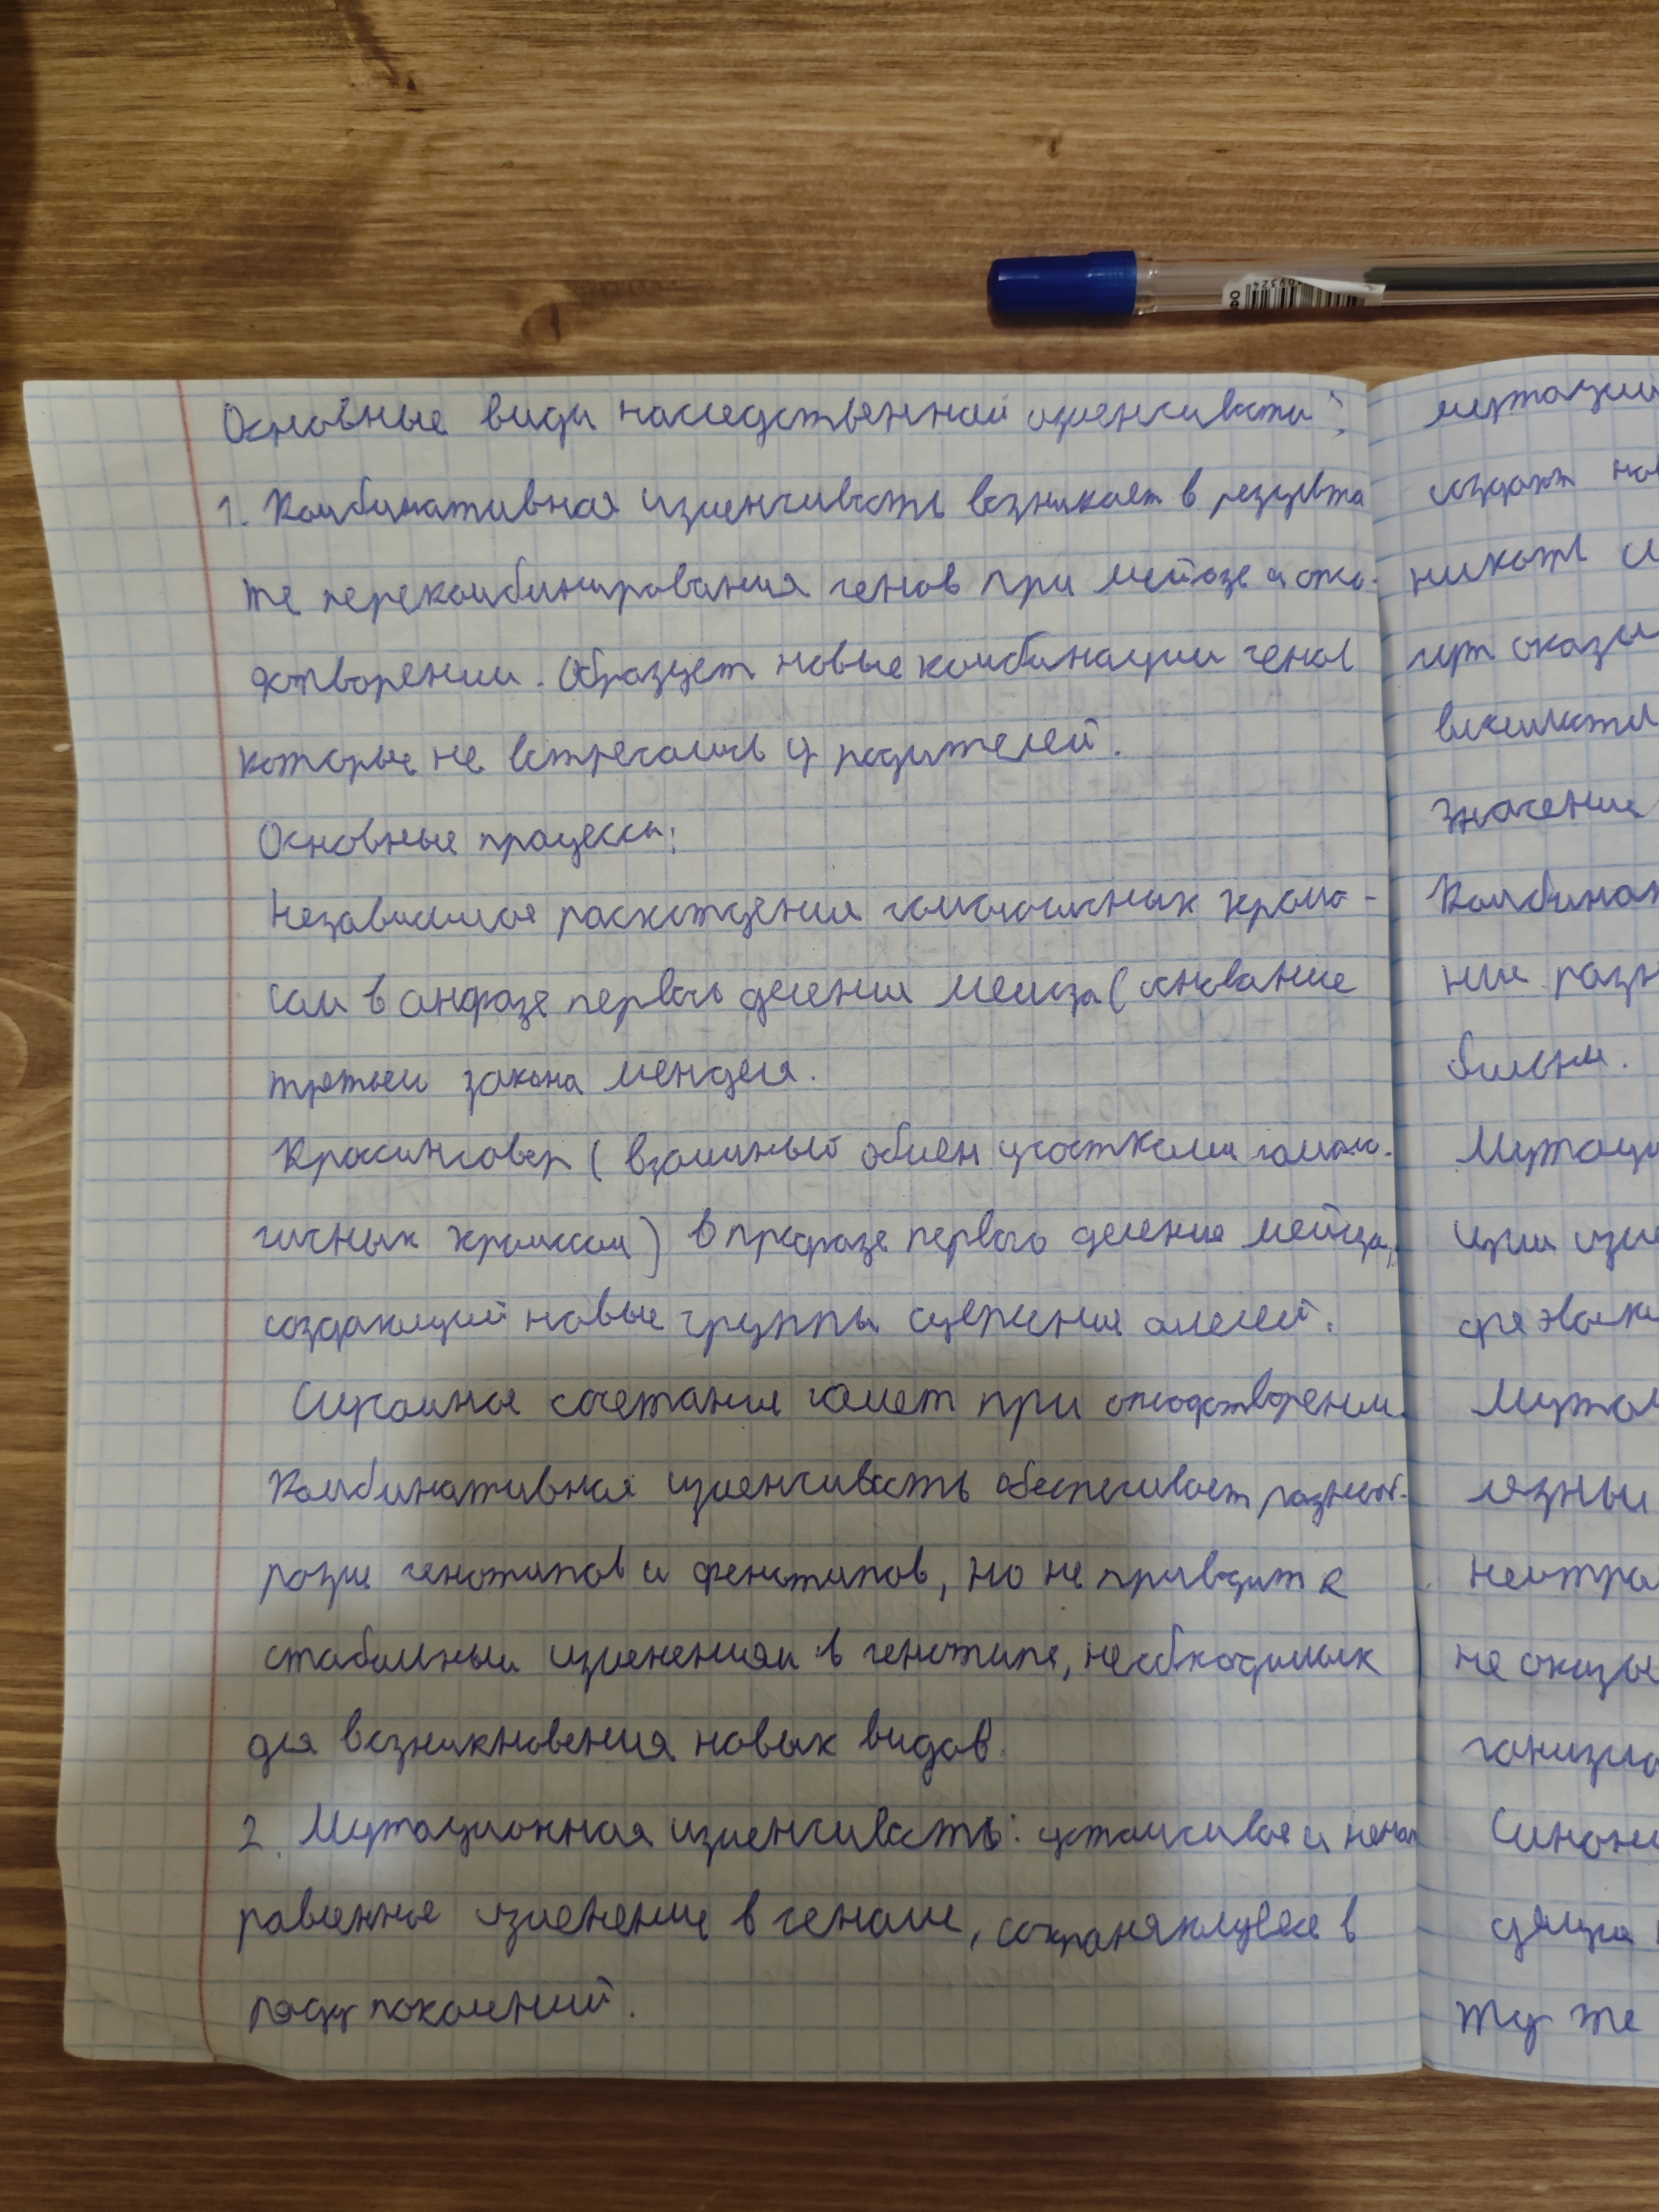 Основные виды наследственной изменчивости:
1. Комбинативная изменчивость возникает в результа
те перекомбинирования генов при мейозе и опло-
дотворении. Образует новые комбинации генов
которые не встречались у родителей.
Основные процессы:
Независимое расхождения гомологичных хромо-
сом в анафазе первого деления мейоза (основание
третьего закона менделя.
Кроссинговер (взаимный обмен участками гомоло-
гичных хромосом) в профазе первого деления мейоза,
создающий новые группы сцепления алелей.
Случайное сочетания гамет при оплодотворении.
Комбинативная изменчивость обеспечивает разнооб-
разие генотипов и фенотипов, но не приводит к
стабильным изменениям в генотипе, необходимых
для возникновения новых видов.
2. Мутационная изменчивость: устойчивое и ненап
равленное изменение в геноме, сохраняющееся в
ряду поколений.
мутации
создают
никать
гут оказы
значение
Комбинат
ние разн
Мутаци
ции изме
не оказы
ту же